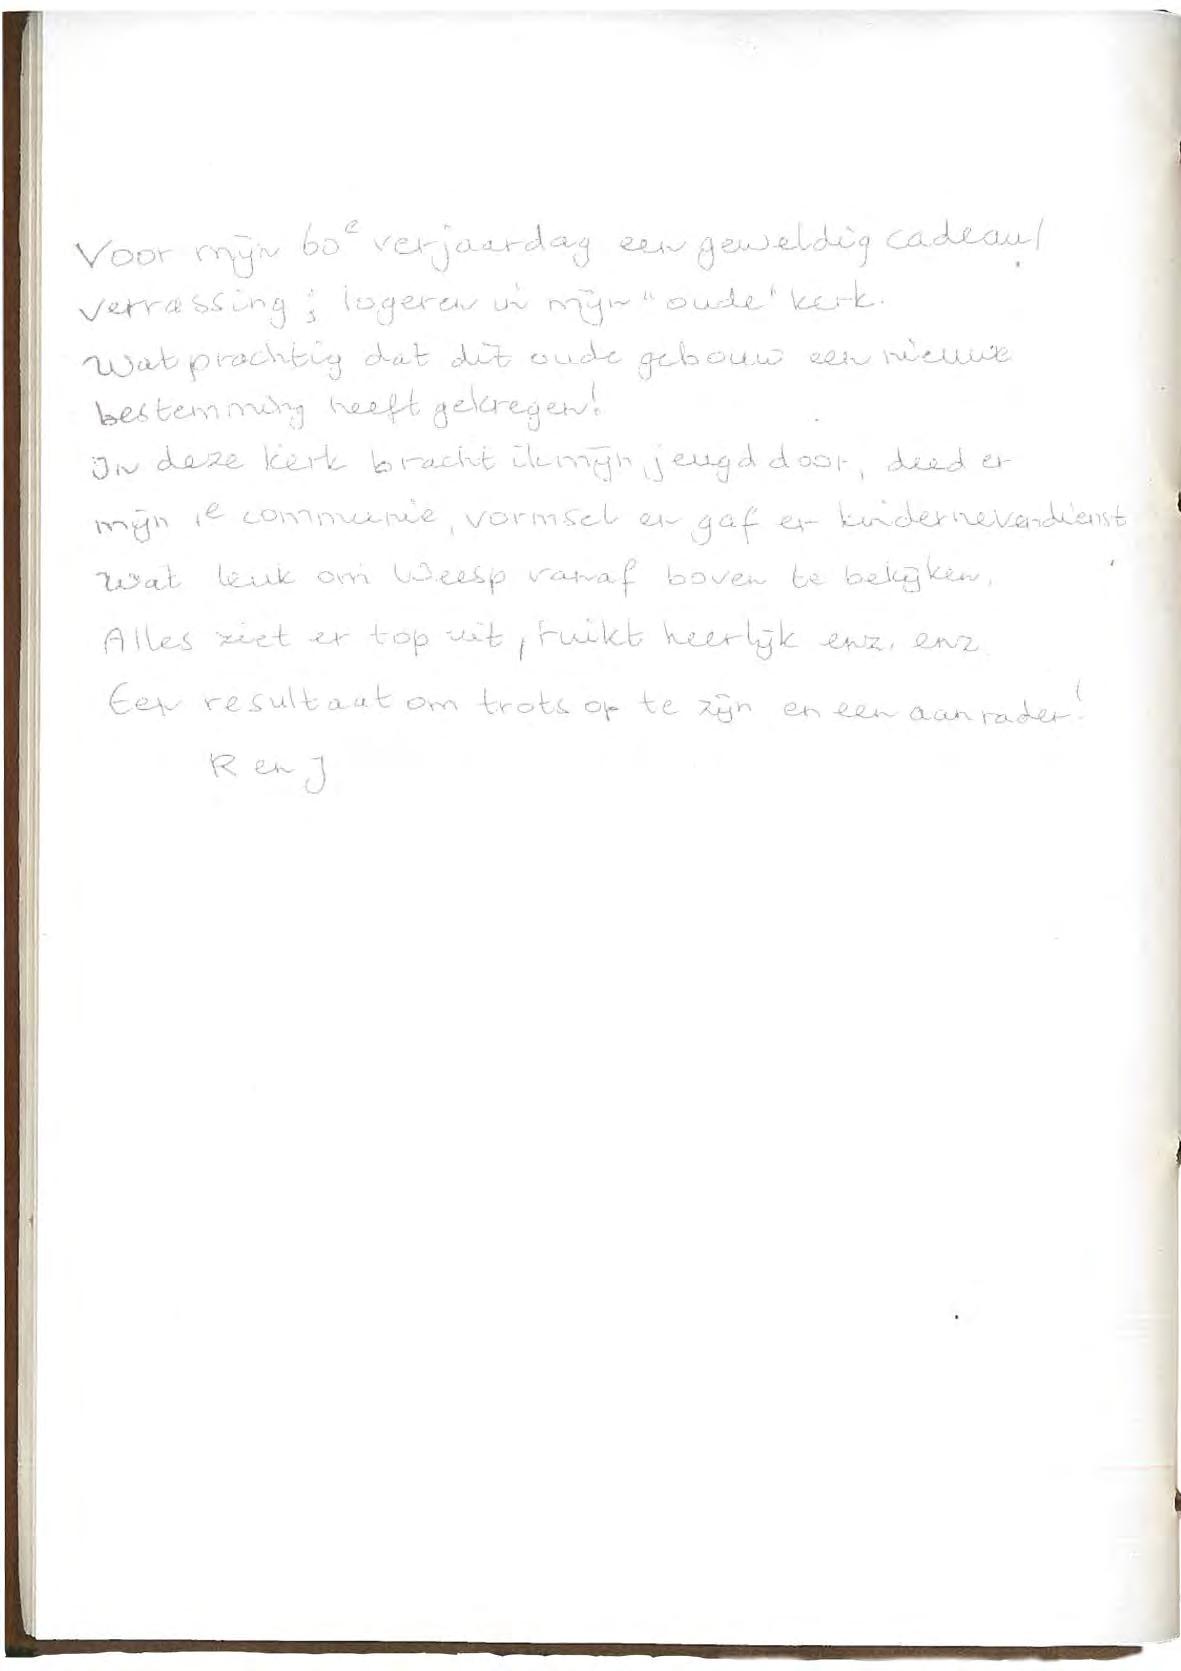 Voor mijn 60e verjaardag een geweldig cadeau/
verrassing; logeren in mijn "oude" kerk.
Wat prachtig dat dit oude gebouw een nieuwe
bestemming heeft gekregen!
In deze kerk bracht ik mijn jeugd door, deed er
mijn 1e communie, vormsel en gaf er kindernevendienst
Wat leuk om Weesp vanaf boven te bekijken.
Alles ziet er top uit, ruikt heerlijk enz. enz.
Een resultaat om trots op te zijn en een aanrader!
R en J